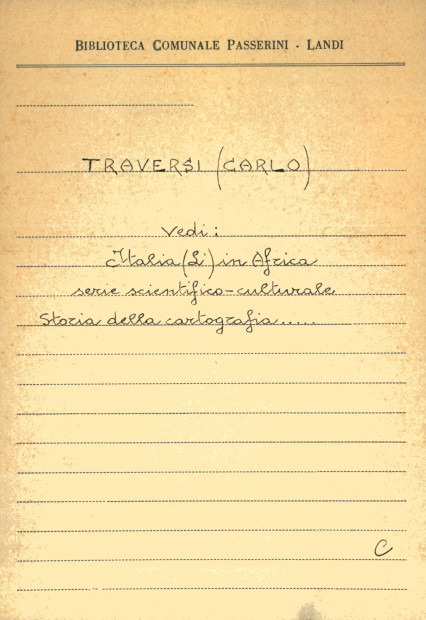 BIBLIOTECA COMUNALE PASSERINI - LANDI
TRAVERSI (CARLO)
Vedi:
Italia (L') in Africa
serie scientifico-culturale
Storia della cartografia.....
C